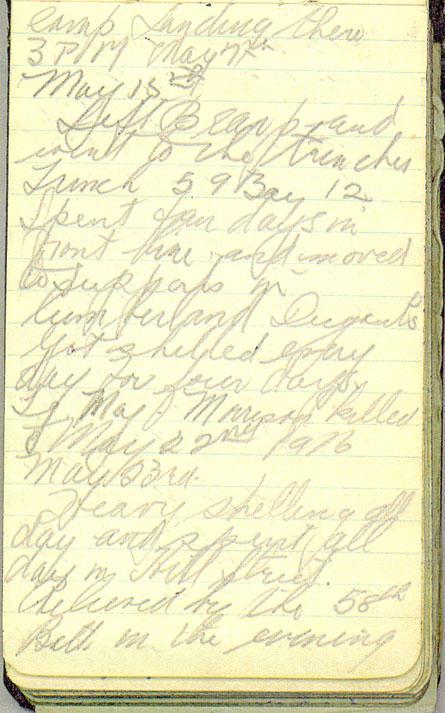 camp landing there
3 PM May 7th
May 15th
Left B Camp and
went to the trenches
Trench 59 Bay 12
Spent four days in
front line and moved
to supports in
Cumberland Dugouts
Got shelled every
day for four days.
May Morrison killed
May 22nd 1916
May 23rd.
Heavy shelling all
day and spent all
day in Hill Street.
Relieved by the 58th
Batt in the evening